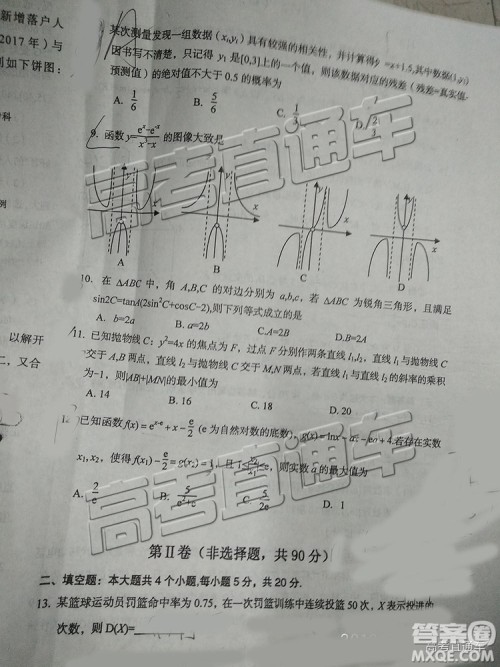 新增落户人
2017年）与
列如下饼图：
科
例
以解开
二，又合
某次测量发现一组数据（xᵢ,yᵢ）具有较强的相关性，并计算得ŷ=x+1.5,其中数据(1,y₀)
因书写不清楚，只记得 y₀ 是[0,3]上的一个值，则该数据对应的残差（残差=真实值-
预测值）的绝对值不大于 0.5 的概率为
A. 1/6 B. 5/6 C. 1/3 D.
9. 函数 y= 的图像大致是
y x y x y x y x
A B C D
10. 在 △ABC 中，角 A,B,C 的对边分别为 a,b,c，若 △ABC 为锐角三角形，且满足
sin2C=tanA(2sin²C+cosC-2),则下列等式成立的是
A. b=2a B. a=2b C.A=2B D.B=2A
11. 已知抛物线 C：y²=4x 的焦点为 F，过点 F 分别作两条直线 l₁,l₂，直线 l₁ 与抛物线 C
交于 A,B 两点，直线 l₂ 与抛物线 C 交于 M,N 两点，若直线 l₁ 与直线 l₂ 的斜率的乘积
为-1，则|AB|+|MN|的最小值为
A. 14 B. 16 C. 18 D. 20
已知函数 f(x)=eˣ⁻ᵉ+x-e/2 (e 为自然对数的底数)，g(x)=lnx-ax-ea+4.若存在实数
x₁,x₂，使得 f(x₁)-e/2=g(x₂)=1，且 ，则实数 a 的最大值为
A. 2/e B. 5/(e²+e) C. 5/(2e) D. 1
第Ⅱ卷（非选择题，共 90 分）
二、填空题：本大题共 4 个小题,每小题 5 分，共 20 分.
13. 某篮球运动员罚篮命中率为 0.75，在一次罚篮训练中连续投篮 50 次，X 表示投进的
次数，则 D(X)=
高考直通车
高考直通车
答案圈
MXQE.COM
高考直通车